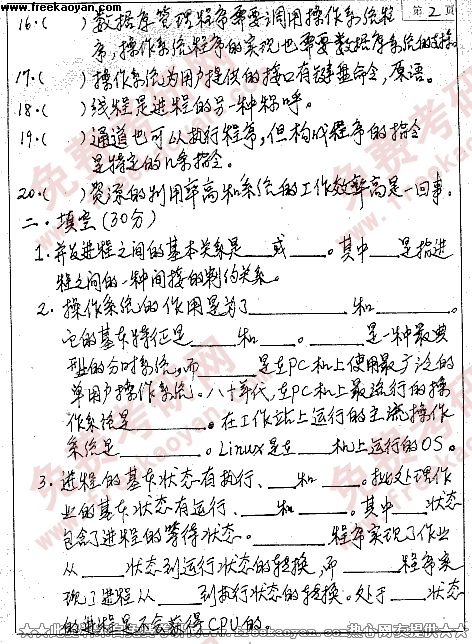 www.freekaoyan.com
第2页
16.( )数据库管理程序需要调用操作系统程
序，操作系统程序的实现也需要数据库系统的支持。
17.( )操作系统为用户提供的接口有键盘命令，原语。
18.( )线程是进程的另一种称呼。
19.( )通道也可以执行程序，但构成程序的指令
是特定的几条指令。
20.( )资源的利用率高和系统的工作效率高是一回事。
二、填空(30分)
1.并发进程之间的基本关系是___或___。其中___是指进
程之间的一种间接的制约关系。
2.操作系统的作用是为了______和______。
它的基本特征是___和___。______是一种最典
型的分时系统，而______是在PC机上使用最广泛的
单用户操作系统。八十年代，在PC机上最流行的操
作系统是______。在工作站上运行的主流操作
系统是______。Linux是在___机上运行的OS。
3.进程的基本状态有执行、___和___。批处理作
业的基本状态有运行、___和___。其中___状态
包含了进程的等待状态。______程序实现了作业
从___状态到运行状态的转换，而______程序实
现了进程从___到执行状态的转换。处于___状态
的进程是不会获得CPU的。